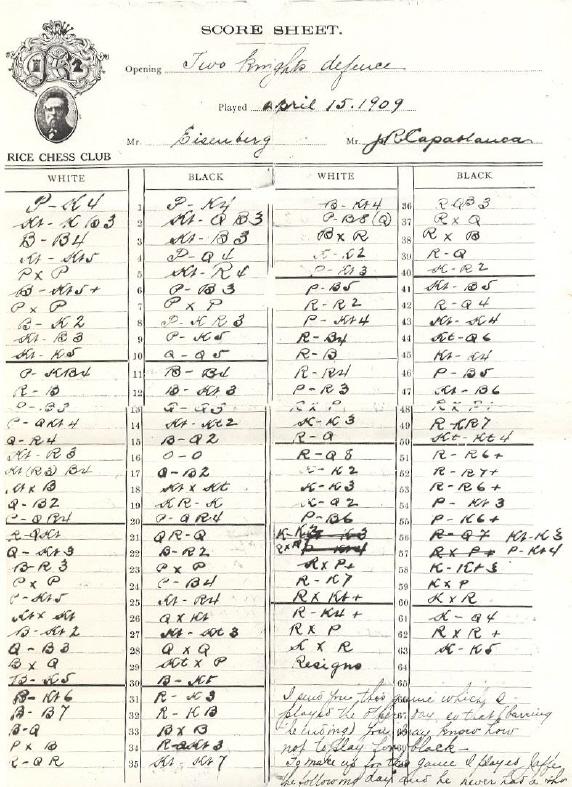 SCORE SHEET.
Opening Two Knights defence
Played April 15. 1909
Mr. Eisenberg Mr. J R Capablanca
RICE CHESS CLUB
WHITE BLACK
P-K4 1 P-K4
Kt-KB3 2 Kt-QB3
B-B4 3 Kt-B3
Kt-Kt5 4 P-Q4
PxP 5 Kt-R4
B-Kt5+ 6 P-B3
PxP 7 PxP
B-K2 8 P-KR3
Kt-B3 9 P-K5
Kt-K5 10 Q-Q5
P-KB4 11 B-B4
R-B 12 B-Kt3
P-B3 13 Q-Q3
P-QKt4 14 Kt-Kt2
Q-R4 15 B-Q2
Kt-R3 16 O-O
Kt(R3)B4 17 Q-B2
KtxB 18 KtxKt
Q-B2 19 KR-K
P-QR4 20 P-QR4
R-QKt 21 QR-Q
Q-Kt3 22 B-R2
B-R3 23 PxP
PxP 24 P-B4
P-Kt5 25 Kt-R4
KtxKt 26 QxKt
B-Kt2 27 Kt-Kt3
Q-B3 28 QxQ
BxQ 29 KtxP
B-K5 30 B-Kt
B-Kt6 31 R-K3
B-B7 32 R-KB
B-Q 33 BxB
PxB 34 R-QKt3
R-QR 35 Kt-Kt7
WHITE BLACK
B-Kt4 36 R-QB3
P-B8(Q) 37 RxQ
BxR 38 RxB
K-K2 39 R-Q
P-Kt3 40 K-R2
P-B5 41 Kt-B5
R-R2 42 R-Q4
P-Kt4 43 Kt-K4
R-B4 44 Kt-Q6
R-B 45 Kt-K4
R-R4 46 P-B5
P-R3 47 Kt-B6
RxP 48 RxP+
K-K3 49 R-KR7
R-Q 50 Kt-Kt4
R-Q8 51 R-R6+
K-K2 52 R-R7+
K-K3 53 R-R6+
K-Q2 54 P-Kt3
P-B6 55 P-K6+
56 R-Q7 Kt-K3
57 RxP+ P-Kt4
RxP+ 58 K-Kt3
R-K7 59 KxP
RxKt+ 60 KxR
R-K4+ 61 K-Q4
RxP 62 RxR+
KxR 63 K-K5
Resigns 64
65
I send you this game which I
played the other day so that (barring
you may know how
not to play for black—
To make up for this game I played Jaffe
the following day and he never had a